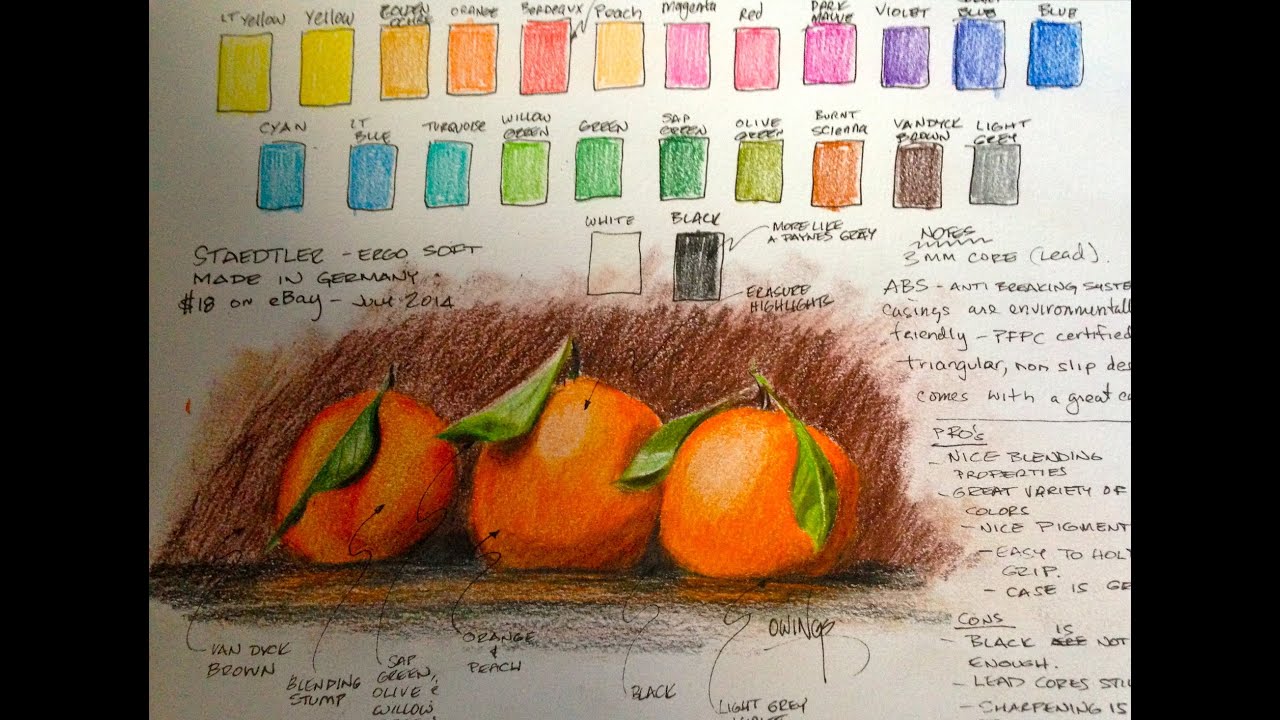 LT Yellow
Yellow
GOLDEN
OCHRE
ORANGE
BORDEAUX
Peach
Magenta
Red
DARK
MAUVE
VIOLET
BLUE
BLUE
CYAN
LT
BLUE
TURQUOISE
WILLOW
GREEN
GREEN
SAP
GREEN
OLIVE
GREEN
BURNT
SCIENNA
VANDYCK
BROWN
LIGHT
GREY
WHITE
BLACK
MORE LIKE
A PAYNES GREY
ERASURE
HIGHLIGHTS
STAEDTLER - ERGO SOFT
MADE IN GERMANY
$18 on eBay - July 2014
NOTES
3 MM CORE (Lead).
ABS - ANTI BREAKING SYSTE
casings are environmentall
friendly - PFPC certified
triangular, non slip des
comes with a great ca
PRO's
- NICE BLENDING
PROPERTIES
- GREAT VARIETY OF
COLORS
- NICE PIGMENT
- EASY TO HOL
GRIP.
- CASE IS GE
CONS
- BLACK IS NOT
ENOUGH.
- LEAD CORES STIL
- SHARPENING IS
OWINGS
VAN DYCK
BROWN
BLENDING
STUMP
SAP
GREEN,
OLIVE &
WILLOW
ORANGE
&
PEACH
BLACK
LIGHT GREY
VIOLET